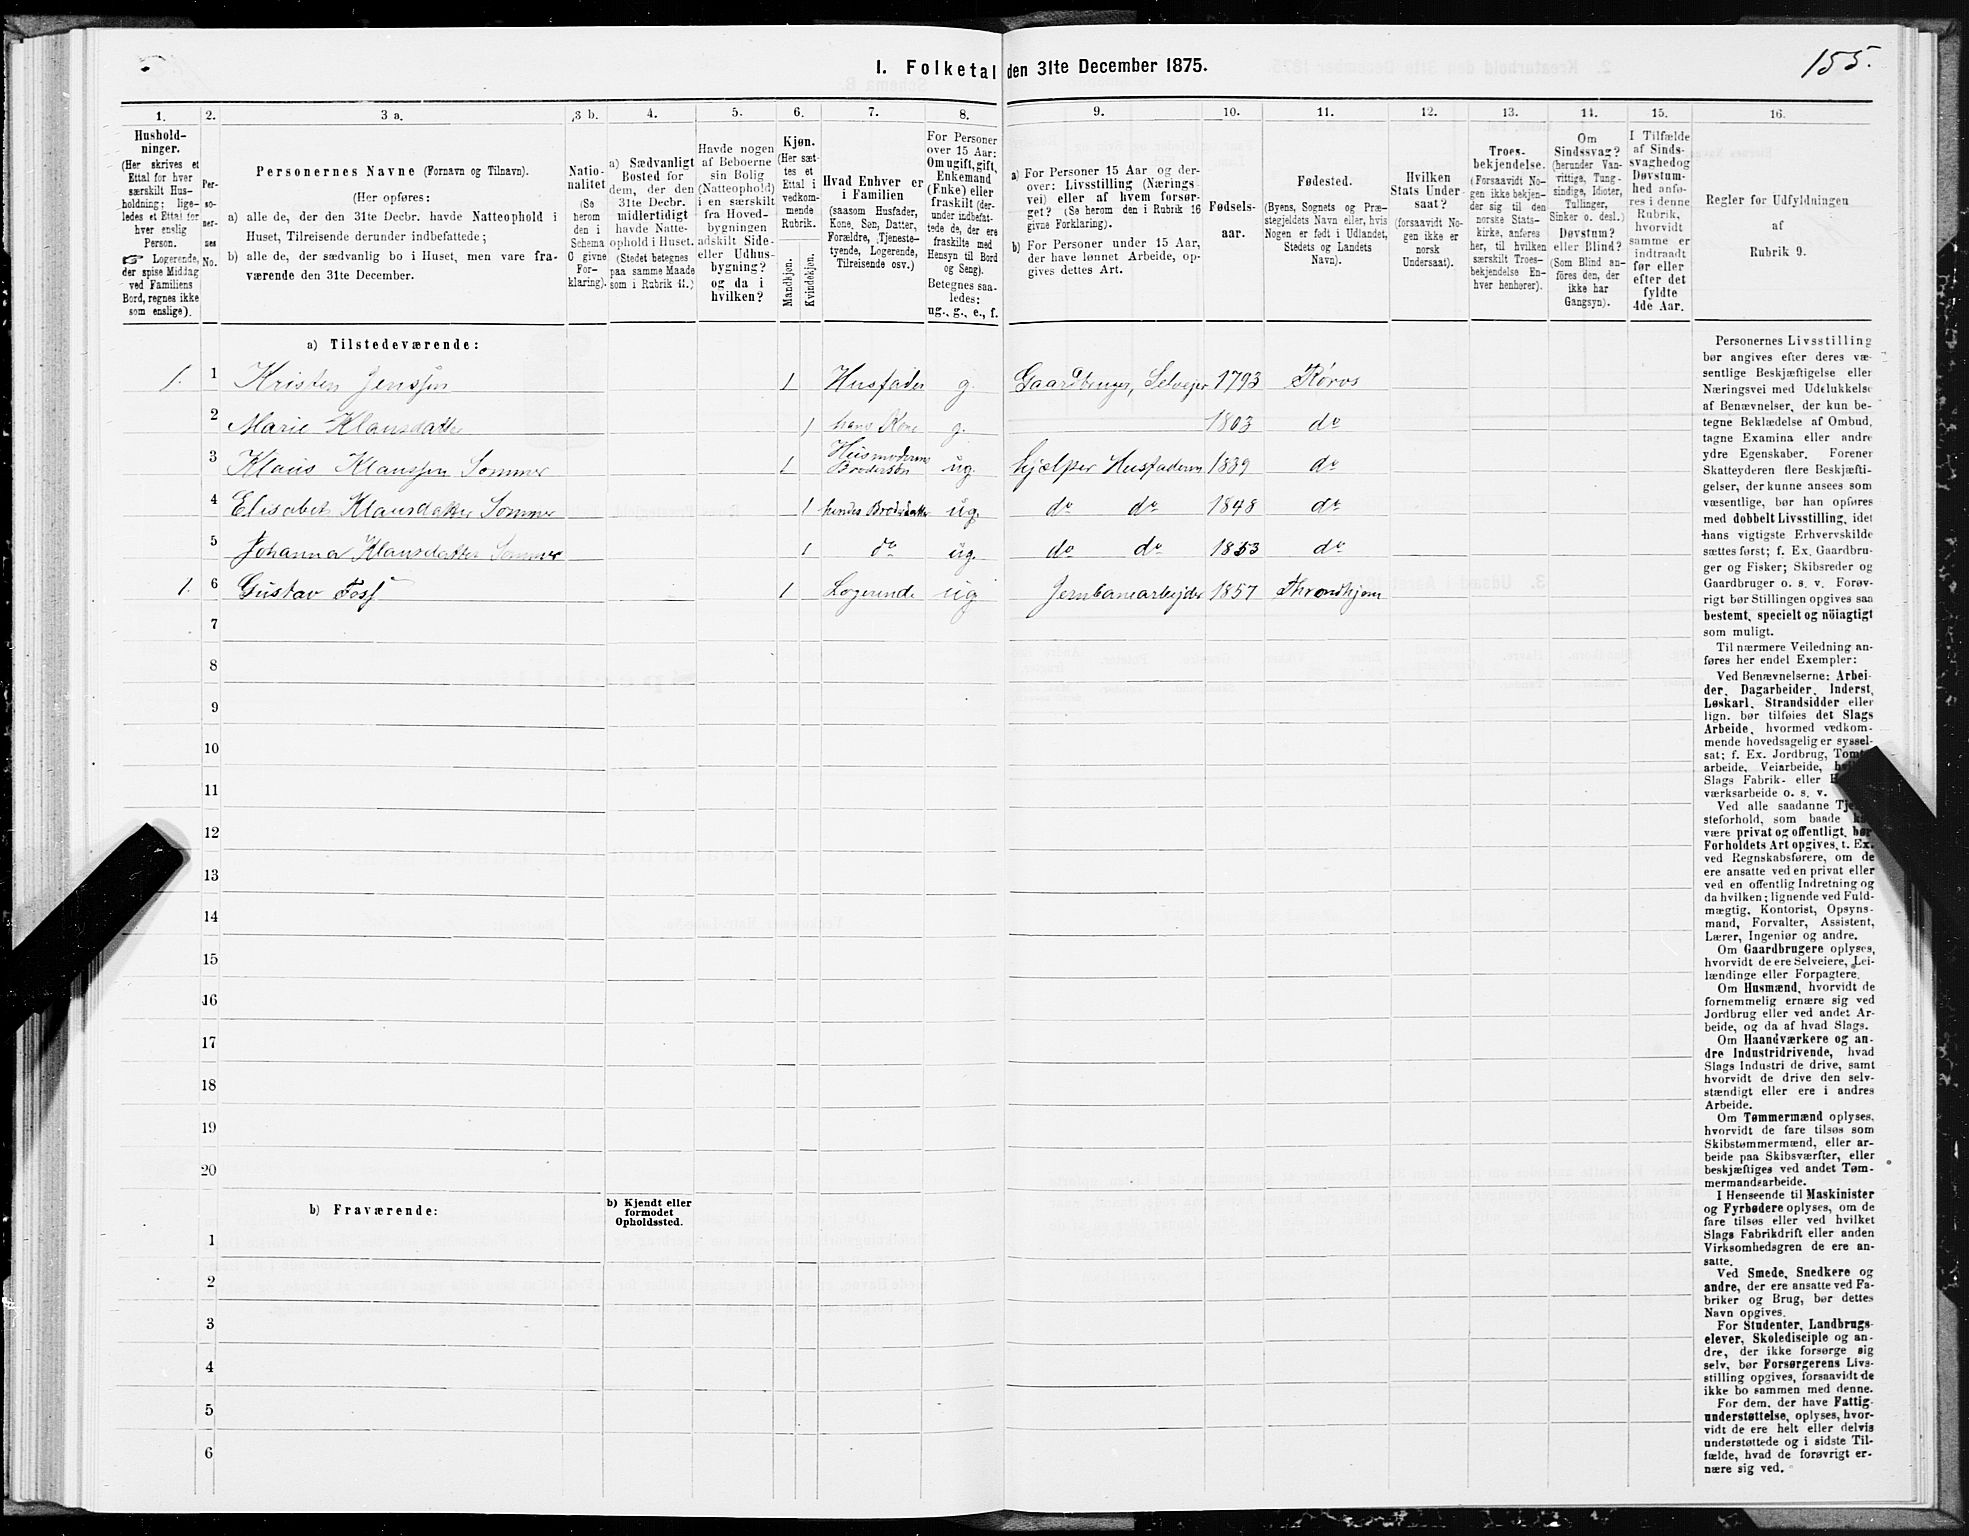 155.
I. Folketal den 31te December 1875.
1. 2. 3 a. 3 b. 4. 5. 6. 7. 8. 9. 10. 11. 12. 13. 14. 15. 16.
Hushold-
ninger.
(Her skrives et
Ettal for hver
særskilt Hus-
holdning; lige-
ledes et Ettal for
hver enslig
Person.
☞ Logerende,
der spise Middag
ved Familiens
Bord, regnes ikke
som enslige).
Per-
so-
ner-
nes
No.
Personernes Navne (Fornavn og Tilnavn).
(Her opføres:
a) alle de, der den 31te Decbr. havde Natteophold i
Huset, Tilreisende derunder indbefattede;
b) alle de, der sædvanlig bo i Huset, men vare fra-
værende den 31te December.
Natio-
nalitet
(Se
herom
den i
Schema
C givne
For-
klaring).
a) Sædvanligt
Bosted for
dem, der den
31te Decbr.
midlertidigt
havde Natte-
ophold i Huset.
(Stedet betegnes
paa samme Maade
som i Rubrik 11.)
Havde nogen
af Beboerne
sin Bolig
(Natteophold)
i en særskilt
fra Hoved-
bygningen
adskilt Side-
eller Udhus-
bygning?
og da i
hvilken?
Kjøn.
(Her sæt-
tes et
Ettal i
vedkom-
mende
Rubrik.
Mandkjøn.
Kvindekjøn.
Hvad Enhver er
i Familien
(saasom Husfader,
Kone, Søn, Datter,
Forældre, Tjeneste-
tyende, Logerende,
Tilreisende osv.)
For Personer
over 15 Aar:
Om ugift, gift,
Enkemand
(Enke) eller
fraskilt (der-
under indbefat-
tede de, der ere
fraskilte med
Hensyn til Bord
og Seng).
Betegnes saa-
ledes:
ug., g., e., f.
a) For Personer 15 Aar og der-
over: Livsstilling (Nærings-
vei) eller af hvem forsør-
get? (Se herom den i Rubrik 16
givne Forklaring).
b) For Personer under 15 Aar,
der have lønnet Arbeide, op-
gives dettes Art.
Fødsels-
aar.
Fødested.
(Byens, Sognets og Præ-
stegjeldets Navn eller, hvis
Nogen er født i Udlandet,
Stedets og Landets
Navn).
Hvilken
Stats Under-
saat?
(forsaavidt No-
gen ikke er
norsk
Undersaat).
Troes-
bekjendelse.
(Forsaavidt No-
gen ikke bekjen-
der sig til den
norske Stats-
kirke, anføres
her, til hvilken
særskilt Troes-
bekjendelse En-
hver henhører).
Om
Sindssvag?
(herunder Van-
vittige, Tung-
sindige, Idioter,
Tullinger,
Sinker o. desl.)
Døvstum?
eller Blind?
(Som Blind an-
føres den, der
ikke har
Gangsyn).
I Tilfælde
af Sinds-
svaghed og
Døvstum-
hed anfø-
res i denne
Rubrik,
hvorvidt
samme er
indtraadt
før eller
efter det
fyldte
4de Aar.
Regler for Udfyldningen
af
Rubrik 9.
a) Tilstedeværende:
1. 1 Kristen Jenssen 1 Husfader g. Gaardbruger, Selvejer 1793 Røros
2 Marie Klausdatter 1 hans Kone g. 1803 do
3 Klaus Klaussen Sommer 1 Husmoderens Brodersøn ug. hjælper Husfaderen 1839 do
4 Elisabet Klausdatter Sommer 1 hendes Broderdatter ug. do do 1848 do
5 Johanna Klausdatter Sommer 1 do ug. do do 1853 do
1. 6 Gustav Foss 1 Logerende ug Jernbanearbejder 1857 Throndhjem
7
8
9
10
11
12
13
14
15
16
17
18
19
20
b) Fraværende:
b) Kjendt eller
formodet
Opholdssted.
1
2
3
4
5
6
Personernes Livsstilling
bør angives efter deres væ-
sentlige Beskjæftigelse eller
Næringsvei med Udelukkelse
af Benævnelser, der kun be-
tegne Beklædelse af Ombud,
tagne Examina eller andre
ydre Egenskaber. Forener
Skatteyderen flere Beskjæfti-
gelser, der kunne ansees som
væsentlige, bør han opføres
med dobbelt Livsstilling, idet
hans vigtigste Erhvervskilde
sættes først; f. Ex. Gaardbru-
ger og Fisker; Skibsreder og
Gaardbruger o. s. v. Forøv-
rigt bør Stillingen opgives saa
bestemt, specielt og nöiagtigt
som muligt.
Til nærmere Veiledning an-
føres her endel Exempler:
Ved Benævnelserne: Arbei-
der, Dagarbeider, Inderst,
Løskarl, Strandsidder eller
lign. bør tilføies det Slags
Arbeide, hvormed vedkom-
mende hovedsagelig er syssel-
sat; f. Ex. Jordbrug, Tomt-
arbeide, Veiarbeide,
Slags Fabrik- eller
værksarbeide o. s. v.
Ved alle saadanne
steforhold, som baade
være privat og offentligt, bør
Forholdets Art opgives, t. Ex.
ved Regnskabsførere, om de
ere ansatte ved en privat eller
ved en offentlig Indretning og
da hvilken; lignende ved Fuld-
mægtig, Kontorist, Opsyns-
mand, Forvalter, Assistent,
Lærer, Ingeniør og andre.
Om Gaardbrugere oplyses,
hvorvidt de ere Selveiere, Lei-
lændinge eller Forpagtere.
Om Husmænd, hvorvidt de
fornemmelig ernære sig ved
Jordbrug eller ved andet Ar-
beide, og da af hvad Slags.
Om Haandværkere og an-
dre Industridrivende, hvad
Slags Industri de drive, samt
hvorvidt de drive den selv-
stændigt eller ere i andres
Arbeide.
Om Tømmermænd oplyses,
hvorvidt de fare tilsøs som
Skibstømmermænd, eller ar-
beide paa Skibsværfter, eller
beskjæftiges ved andet Tøm-
mermandsarbeide.
I Henseende til Maskinister
og Fyrbødere oplyses, om de
fare tilsøs eller ved hvilket
Slags Fabrikdrift eller anden
Virksomhedsgren de ere an-
satte.
Ved Smede, Snedkere og
andre, der ere ansatte ved Fa-
briker og Brug, bør dettes
Navn opgives.
For Studenter, Landbrugs-
elever, Skoledisciple og an-
dre, der ikke forsørge sig
selv, bør Forsørgerens Livs-
stilling opgives, forsaavidt de
ikke bo sammen med denne.
For dem, der have Fattig-
understøttelse, oplyses, hvor-
vidt de ere helt eller delvis
understøttede og i sidste Til-
fælde, hvad de forøvrigt er-
nære sig ved.